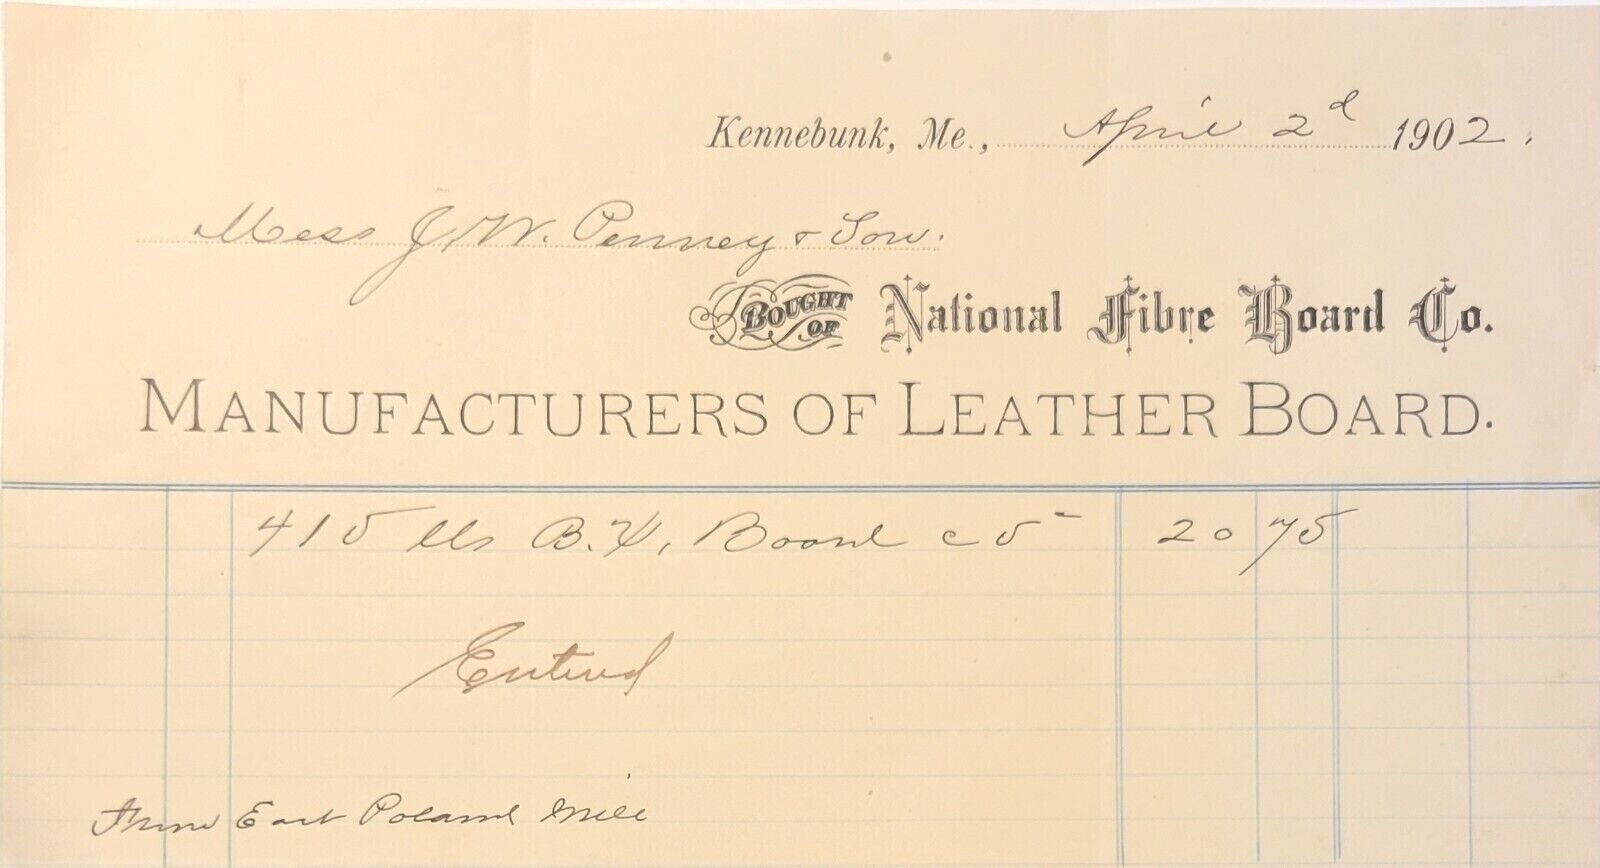 Kennebunk, Me., April 2d 1902.
Mess J. W. Penney & Son.
BOUGHT OF National Fibre Board Co.
MANUFACTURERS OF LEATHER BOARD.
415 lbs B. H. Board c 5- 20 75
Entered
From East Poland Mill